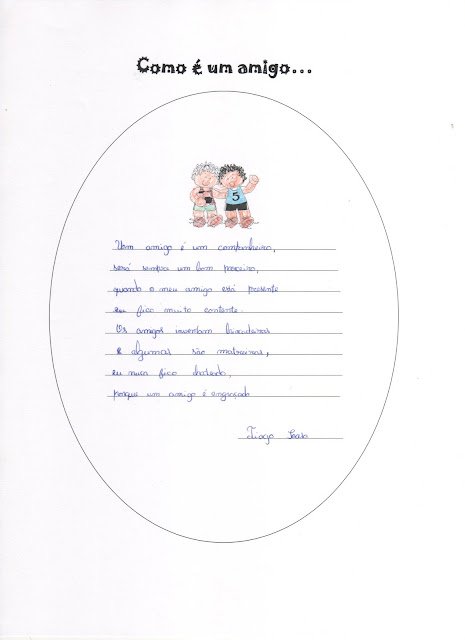 Como é um amigo...
5
Um amigo é um companheiro,
será sempre um bom parceiro,
quando o meu amigo está presente
eu fico muito contente.
Os amigos inventam brincadeiras
e algumas são matreiras,
eu nuca fico chateado,
porque um amigo é engraçado
Tiago